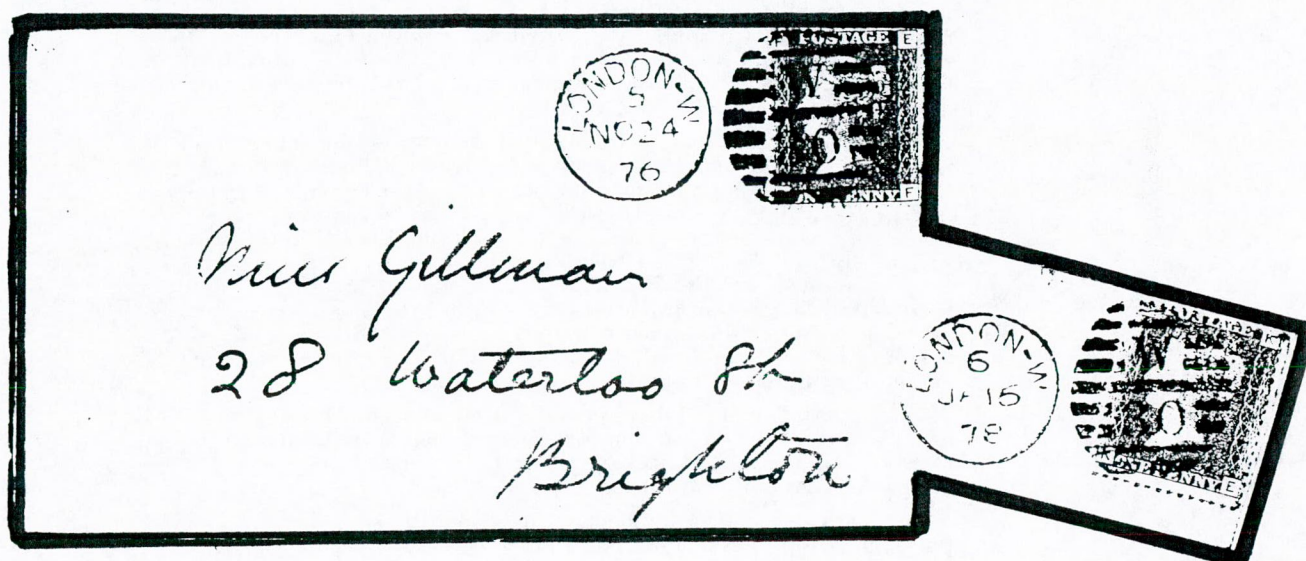 LONDON-W
S
NO24
76
POSTAGE E
W
O
PENNY F
Miss Gillman
28 Waterloo St
Brighton
LONDON-W
6
JA 15
78
W
O
PENNY E